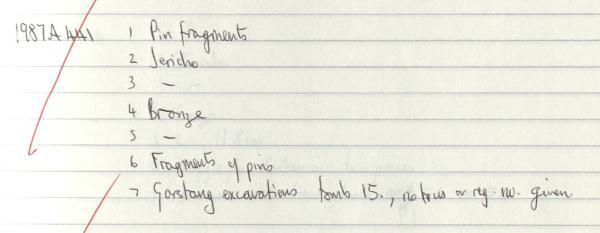 1987A 441 1 Pin fragments
2 Jericho
3 –
4 Bronze
5 –
6 Fragments of pins
7 Garstang excavations tomb 15., no or reg. no. given